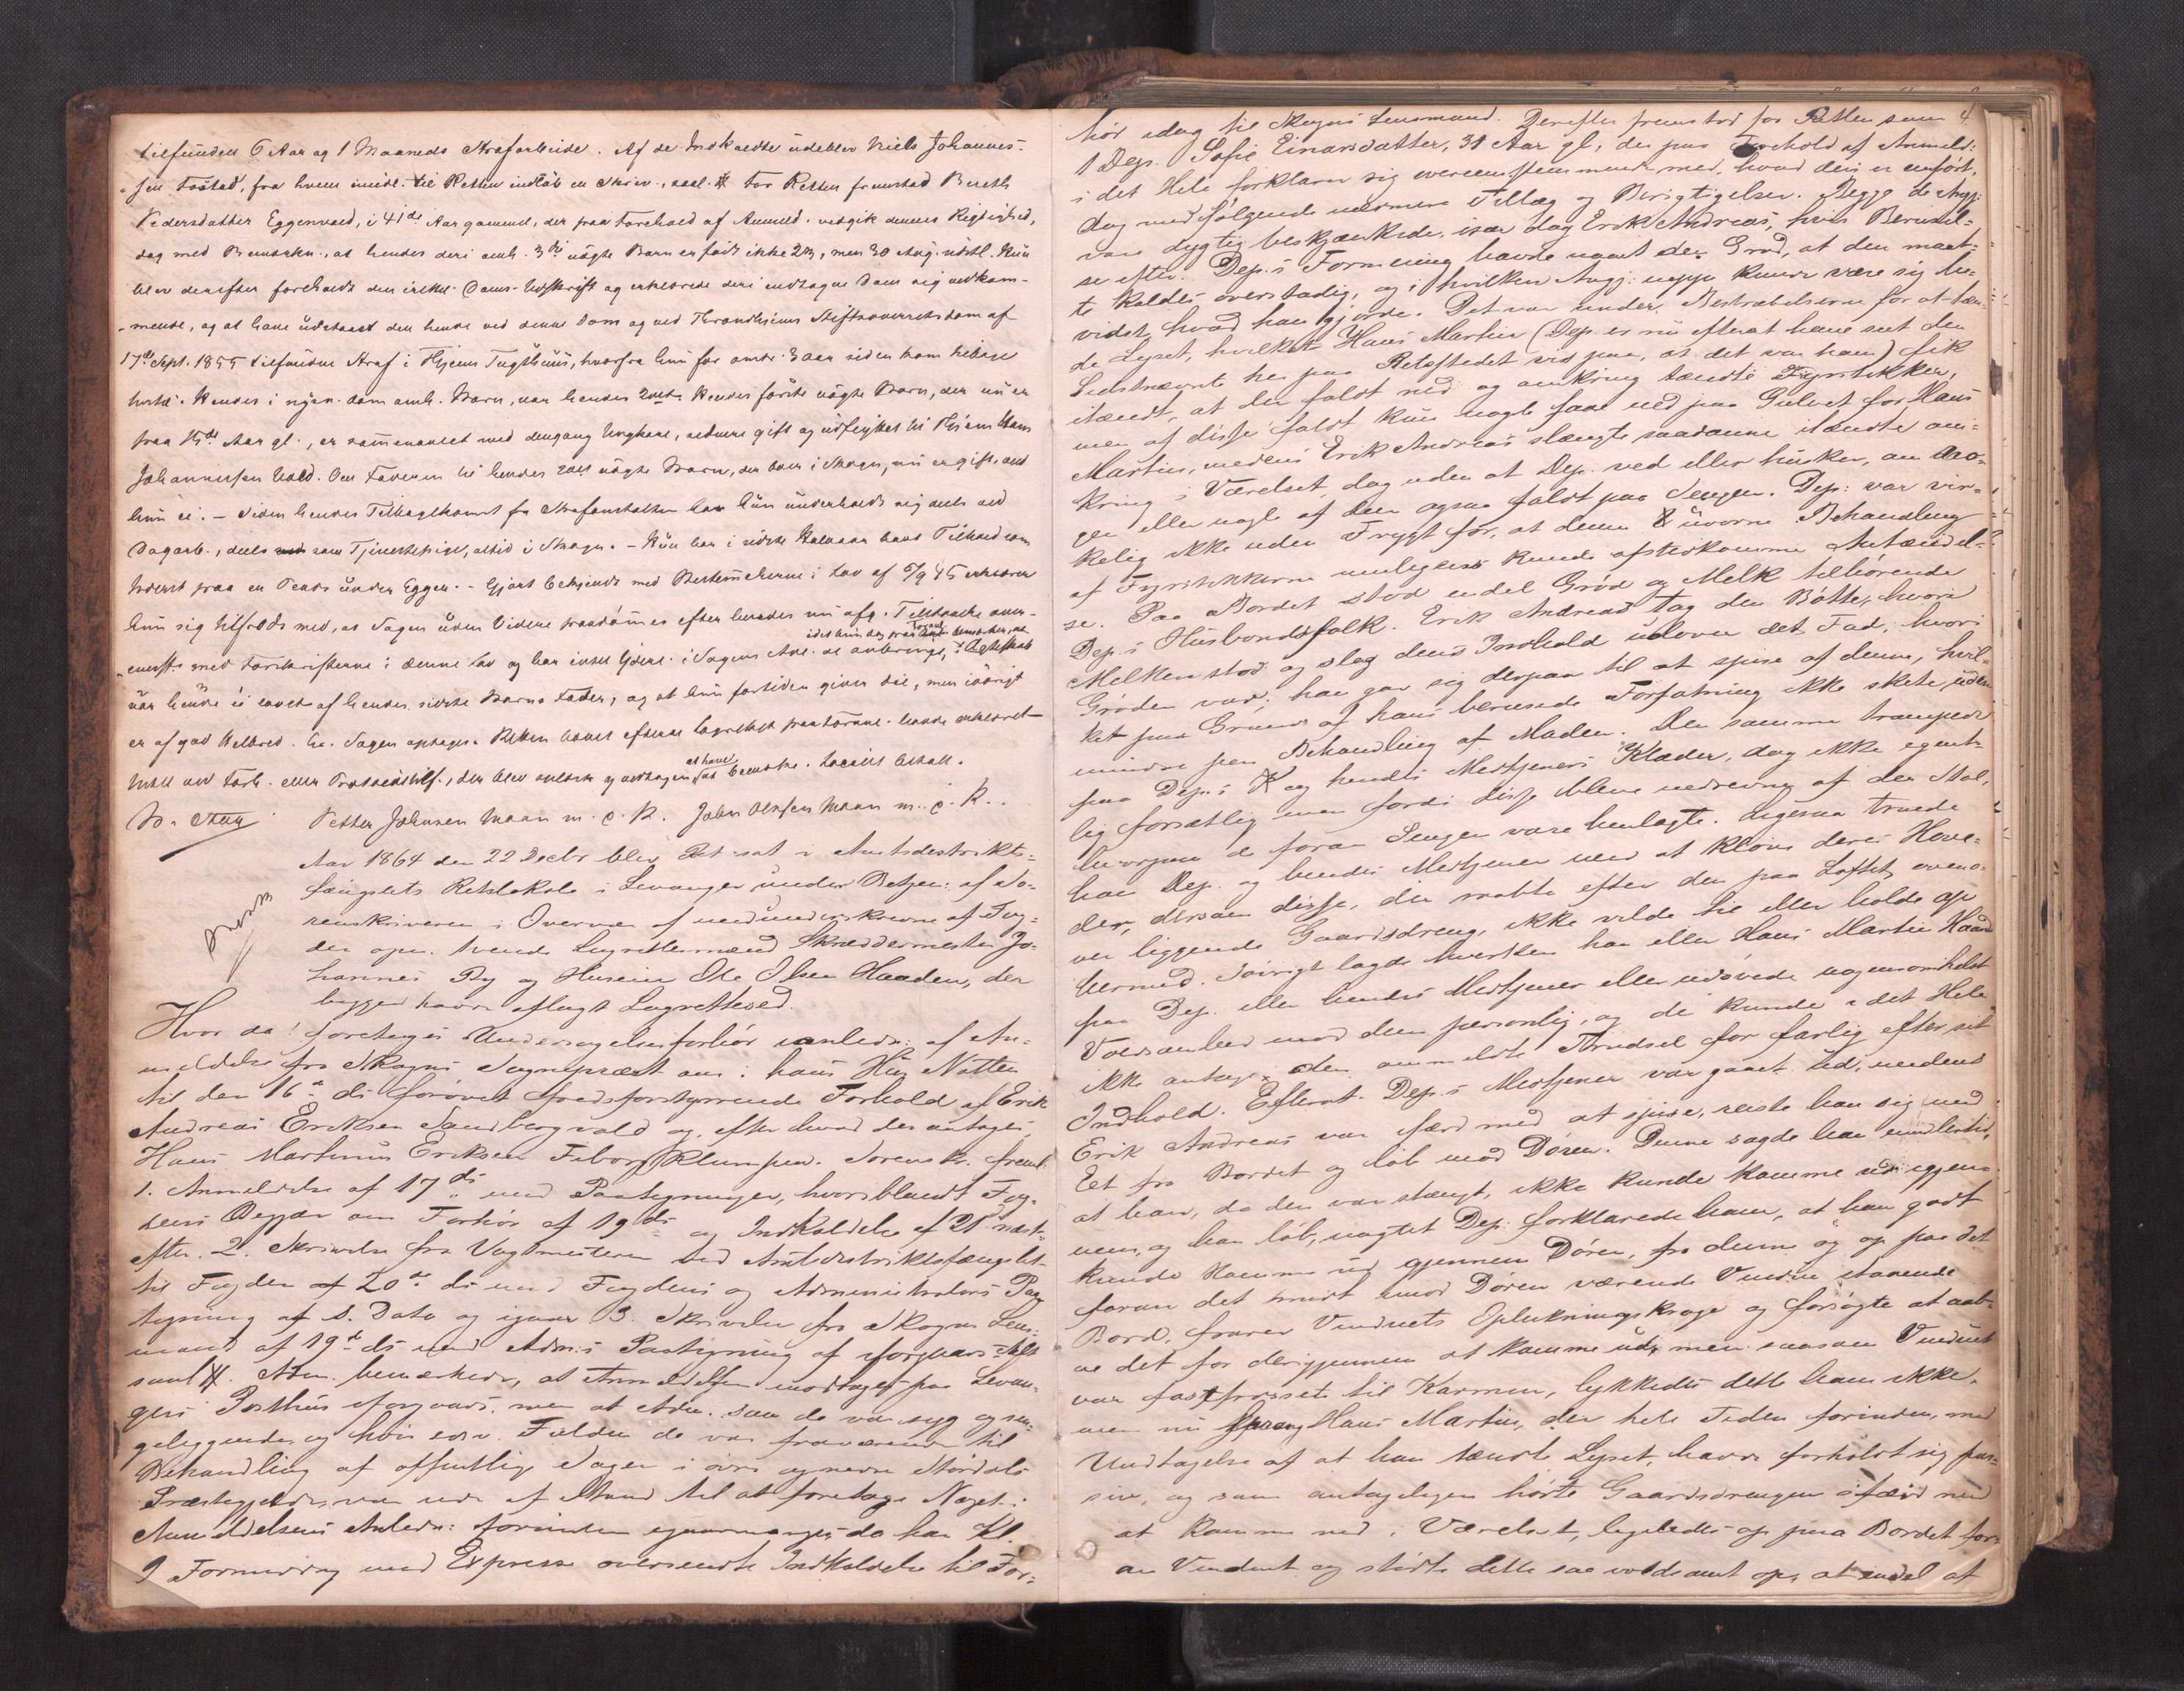 tilfunden 6 Aar og 1 Maaneds Strafarbeide. Af de Indkaldte udeblev Niels Johannes-
sen Tøstad, fra hvem imidl. til Retten indløb en Skriv., saal. # For Retten fremstod Bereth
Pedersdatter Eggenvald, i 41de Aar gammel, der paa Forehold af Anmeld. vedgik dennes Rigtighed,
dog med Bemærkn., at hendes deri omh. 3die uægte Barn er født ikke 23, men 30 Aug. sidstl. Hun
blev derefter foreholdt den irette Doms-Udskrift og erklærede deri indtagne Dom sig vedkom-
mende, og at have udstaaet den hende ved denne Dom og ved Throndhjems Stiftsoverretsdom af
17de Sept. 1855 tilfundne Straf i Thjems Tugthuus, hvorfra hun for omtr. 3 aar siden kom tilbage
hertil. Hendes i nysn. Dom omh. Barn, var hendes 2det. Hendes første uægte Barn, der nu er
paa 15de Aar gl., er sammenavlet med dengang Ungkarl, senere gift og udflyttet til Thjem Hans
Johannessen Vald. Om Faderen til hendes 2det uægte Barn, der boer i Skogn, nu er gift, ved
hun ei. - Siden hendes Tilbagekomst fra Strafanstalten har hun underholdt sig dels ved
Dagarb., deels som Tjenestepige, altid i Skogn. - Hun har i sidste Halvaar havt Tilhold som
Inderst paa en Plads under Eggen. - Gjort bekjendt med Bestemmelserne i Lov af 6/9 45 erklærer
hun sig tilfreds med, at Sagen uden Videre paadømmes efter hendes nu afg. Tilstaaelse over-
eensst. med Forskrifterne i denne Lov og har intet Ydere. i Sagens Anl. at anbringe, idet hun dog paa Forand. bemærker, at Ægteskab
var hende ei lovet af hendes sidste Barns Fader, og at hun fortiden giver Die, men iøvrigt
er af god Helbred. Sagen optages. Retten hævet efterat Lagrettet paa Tørnne. havde erklæret
Intet ved Forh. eller Protocoltilf., der blev oplæst og vedtagen, at have at bemærke. Localet betalt.
Petter Johnsen Maan m. o. P. John Olsen Maan m. o. P.
Aar 1864 den 22 Decbr blev Ret sat i Amtsdistrikts-
fængslets Retslokale i Levanger under Betjen: af So-
renskriveren i Overvær af medunderskrevne af Fog-
den opn. tvende Lagrettesmænd Skreddermester Jo-
hannes Ry og Huseier Ole Olsen Haaden, der
begge havde aflagt Lagrettesed.
Hvor da! foretoges Undersøgelsesforhør i Anledn: af An-
meldelse fra Skogns Sognepræst om i hans Hus Natten
til den 16de ds forøvet fredsforstyrrende Forhold af Erik
Andreas Eriksen Sandbergvald og, efter hvad der antages,
Hans Martinus Eriksen Fiborg Klumpen. Sorensk. freml.
1. Anmeldelse af 17de ds med Paategninger, hvoriblandt Fog-
dens Begjær om Forhør af 19 ds og Indkaldelse af 21 næst-
efter. 2. Skrivelse fra Vagtmesteren ved Amtsdistriktsfængslet
til Fogden af 20de ds med Fogdens og Administrators Paa-
tegning af S. Dato og igaar 3. Skrivelse fra Skogns Lens-
mand af 19de ds med Adm:s Paategning af forgaars Aft
saal #. Adm. bemærkede, at Anmeldelsen modtoges paa Levan-
gers Posthus iforgaars, men at Adm. som da var syg og sen-
geliggende, og hvis Fulden. da var fraværende til
Behandling af offentlige Sager i øvre og nedre Størdals
Præstegjelder, var ude af Stand til at foretage Noget i
Anmeldelsens Anledn: forinden igaarmorges da han Kl.
9 Formiddag med Express oversendte Indkaldelse til For-
4
hør idag til Skogns Lensmand. Derefter fremstod for Retten som
1 Dep. Sofie Einarsdatter, 31 Aar gl., der paa Forehold af Anmeld:
i det Hele forklarer sig overeensstemmende med, hvad deri er anført,
dog med følgende nærmere Tillæg og Berigtigelser. Begge de Angj:
vare dygtig beskjænkede, især dog Erik Andreas, hvis Beruself-
se efter Dep.s Formening havde naaet den Grad, at den maat-
te kaldes overstadig, og i hvilken Angj: neppe kunde være sig be-
vidst, hvad han gjorde. Det var under Bestræbelserne for at tæn-
de Lyset, hvilket Hans Martin (Dep. er nu efterat have seet den
Sidstnævnte her paa Retsstedet vis paa, at det var ham) fik
itændt, at der faldt ned og omkring tændte Fyrstikker,
men af disse faldt kun nogle faae ned paa Gulvet for Hans
Martin, medens Erik Andreas slængte saadanne itændte om-
kring i Værelset, dog uden at Dep. ved eller husker, om No-
gen eller nogle af dem ogsaa faldt paa Sengen. Dep: var vir-
kelig ikke uden Frygt for, at denne uvorne Behandling
af Fyrstikkerne muligens kunde afstedkomme Antændel-
se. Paa Bordet stod endel Grød og Melk tilhørende
Dep.s Husbondsfolk. Erik Andreas tog den Bøtte, hvori
Melken stod, og slog dens Indhold udover det Fad, hvori
Grøden var; han gav sig derpaa til at spise af denne, hvil-
ket paa Grund af hans berusede Forfatning ikke skete uden
mindre pen Behandling af Maden. Den samme trampede
paa Dep.s og hendes Medtjeners Klæder, dog ikke egent-
lig forsætlig men fordi disse bleve nedrevne af den Stol,
hvorpaa de foran Sengen vare henlagte. Ligesaa truede
han Dep. og hendes Medtjener med at kløve deres Hove-
der, dersom disse, der raabte efter den paa Loftet oveno-
ver liggende Gaardsdreng, ikke vilde tie eller holde op
hermed. Iøvrigt lagde hverken han eller Hans Martin Haand
paa Dep. eller hendes Medtjener eller udøvede nogensomhelst
Voldsomhed mod dem personlig, og de kunde i det Hele
ikke antage den anmeldte Trudsel for farlig efter sit
Indhold. Efterat Dep.s Medtjener var gaaet ud, medens
Erik Andreas var færd med at spise, reiste han sig med
Eet fra Bordet og løb mod Døren. Denne sagde han imidlertid,
at han, da den var stængt, ikke kunde komme ud igjen-
nem, og han løb, uagtet Dep. forklarede ham, at han godt
kunde komme ud gjennem Døren, fra denne og op paa det
foran det mindst imod Døren værende Vindue staaende
Bord, fraxx Vinduets Oplukningskroge og forsøgte at aab-
ne det for derigjennem at komme ud; men saasom Vinduet
var fastfrosset til Karmen, lykkedes dette ham ikke.
men nu sprang Hans Martin, der hele Tiden forinden, med
Undtagelse af at han tændte Lyset, havde forholdt sig pas-
siv, og som antageligen hørte Gaardsdrengen ifærd med
at komme ned i Værelset, ligeledes op paa Bordet for-
an Vinduet og stødte dette saa voldsomt op, at endel af